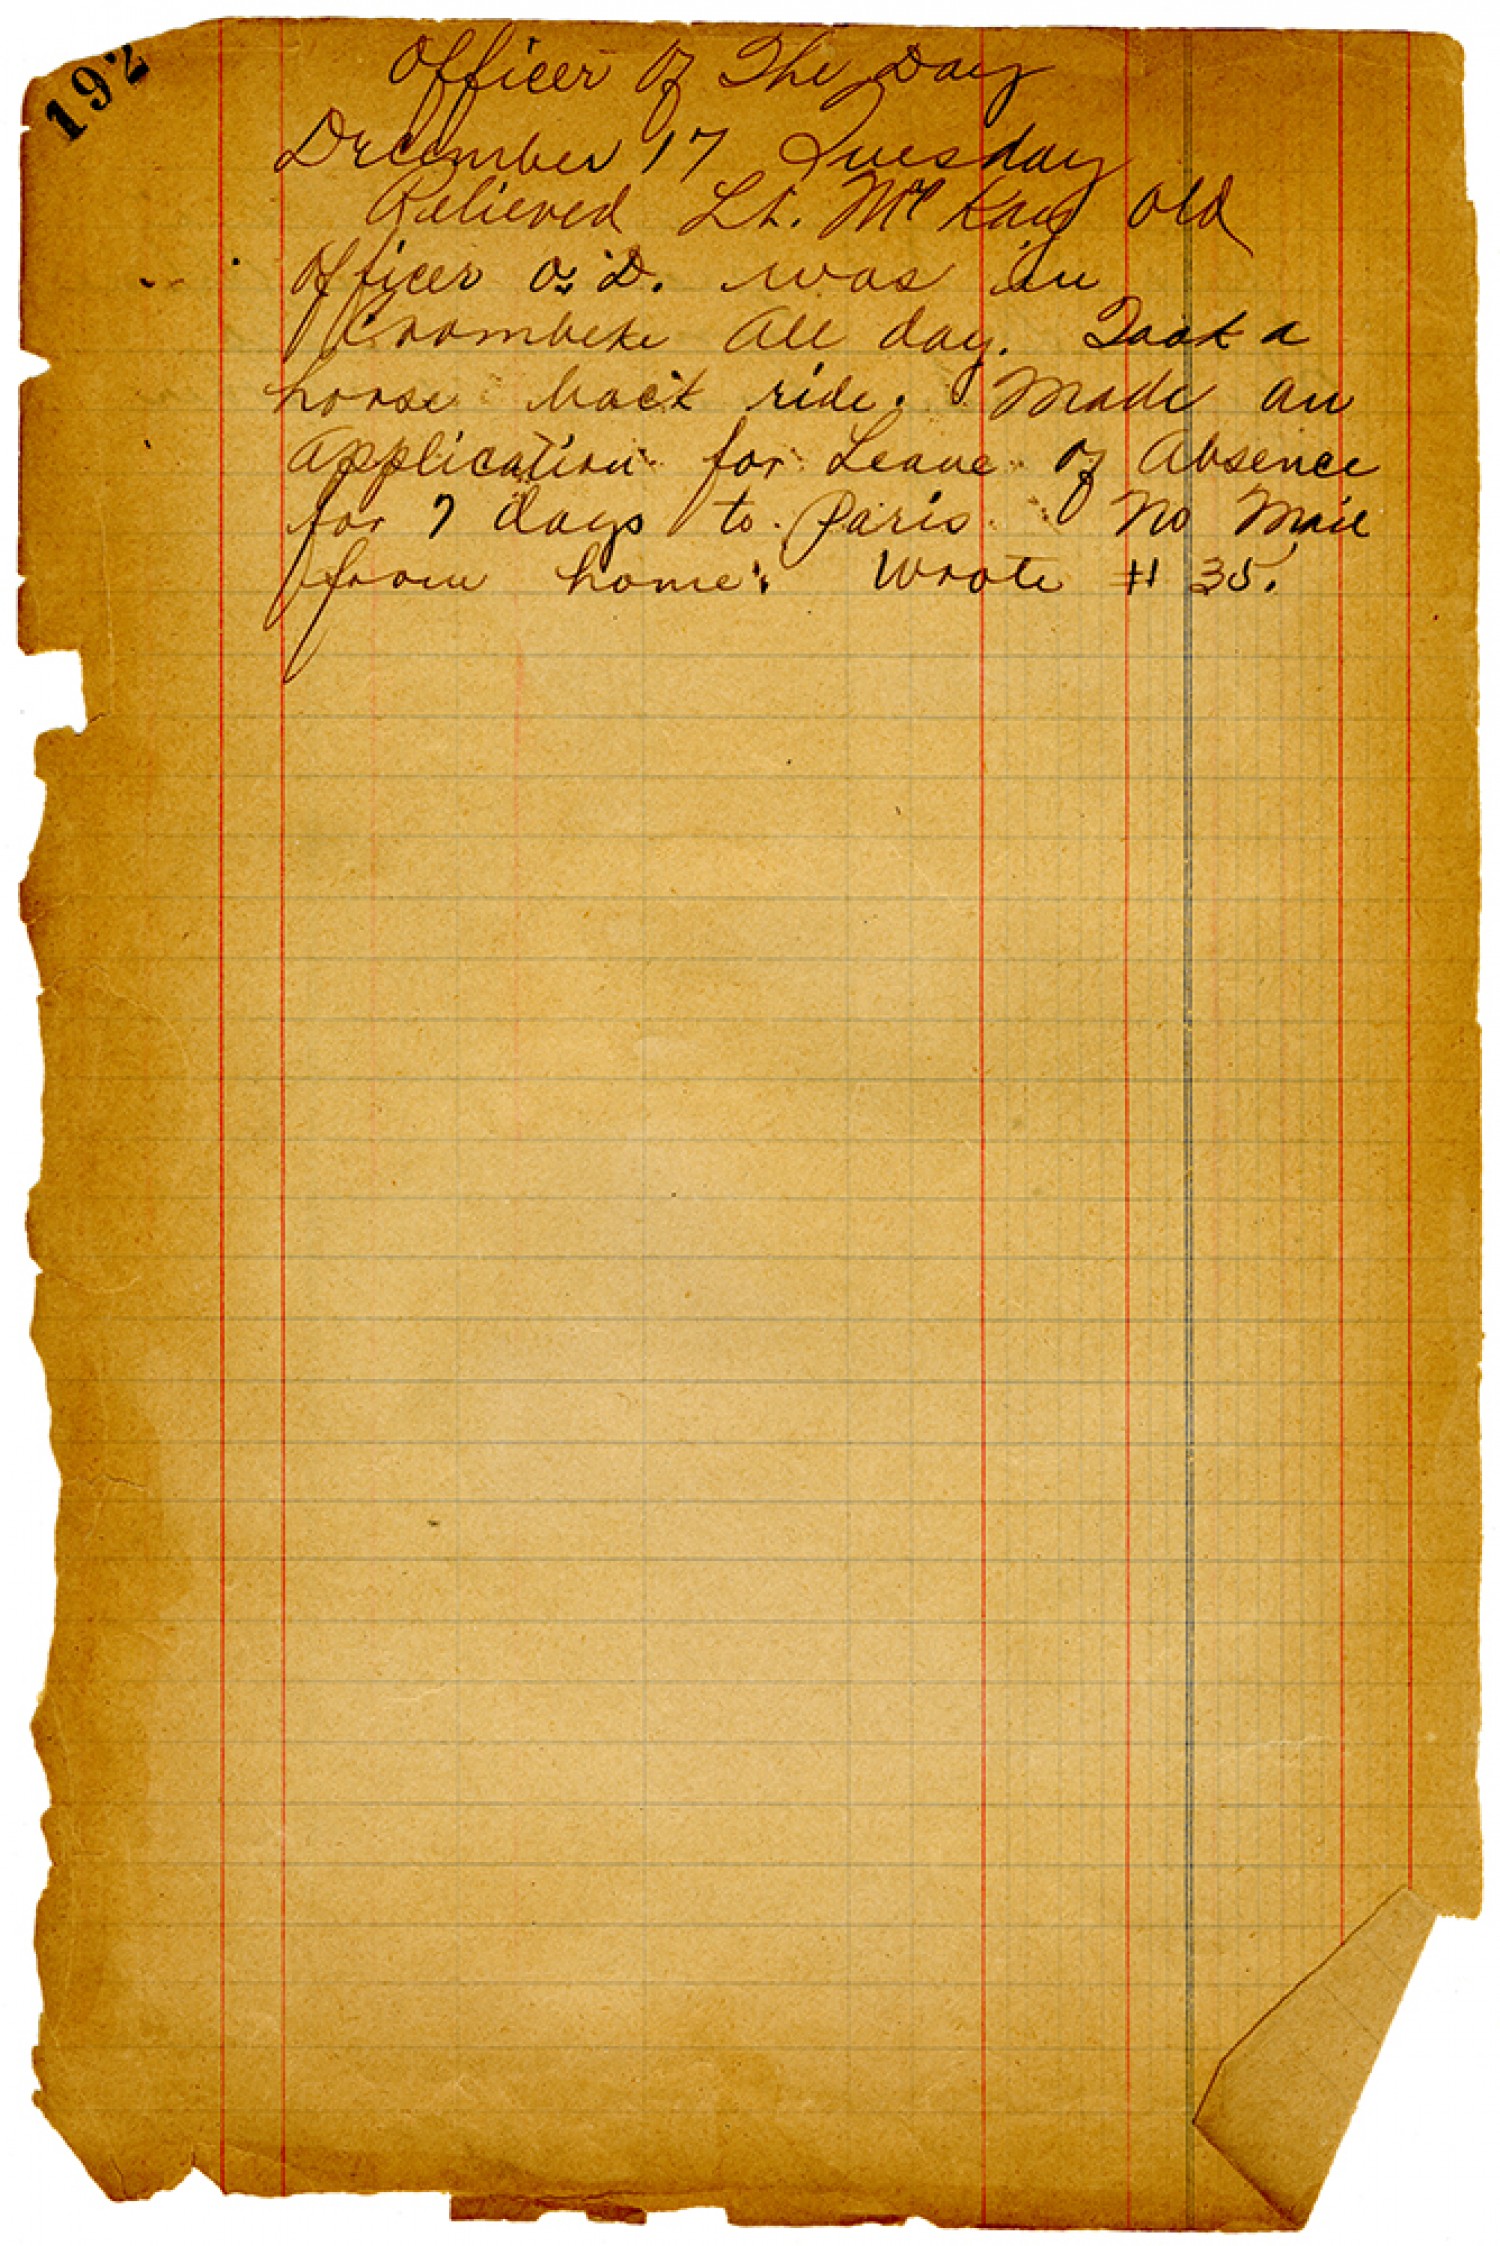 192
Officer Of The Day
December 17 Tuesday
Relieved Lt. McKay Old
Officer O.D. was in
Crombeke All day. Took a
horse back ride. Made an
Application for Leave of Absence
for 7 days to Paris. No Mail
from home. Wrote # 35.